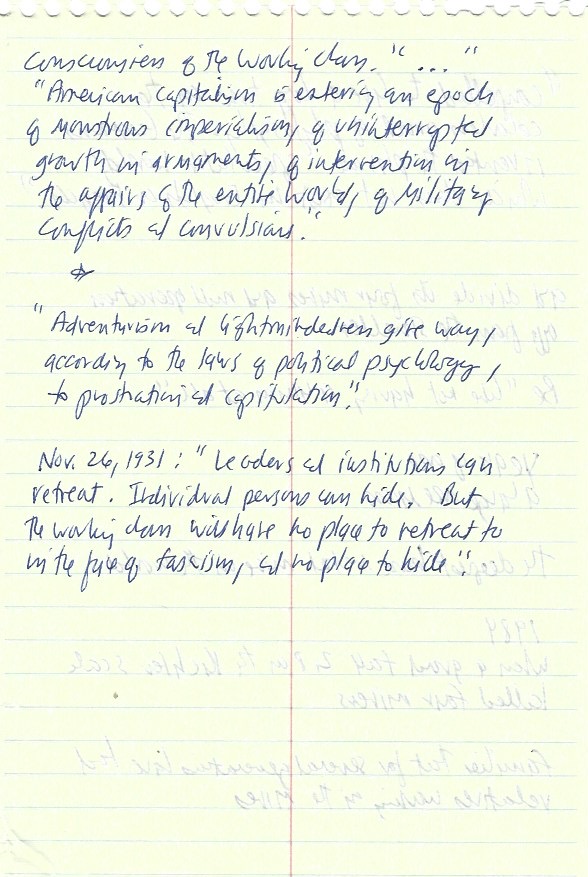 consciousness of the working class. "..."
"American capitalism is entering an epoch
of monstrous imperialism, of uninterrupted
growth in armaments, of intervention in
the affairs of the entire world, of military
conflicts and convulsions."
"Adventurism and lightmindedness give way,
according to the laws of political psychology,
to prostration and capitulation."
Nov. 26, 1931: "Leaders and institutions can
retreat. Individual persons can hide. But
the working class will have no place to retreat to
in the face of fascism, and no place to hide."